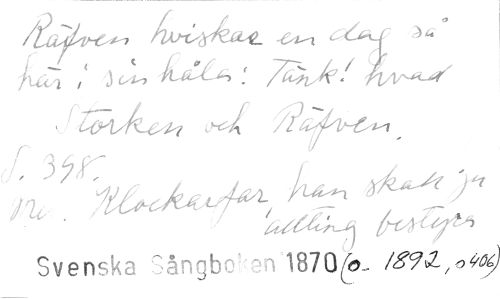 Räfven hviskar en dag så
här i sin håla: Tänk! hvad
Storken och Räfven.
S. 398.
Mel. Klockarfar, han skall ju
allting bestyra
Svenska Sångboken 1870 (o. 1892, s 406)